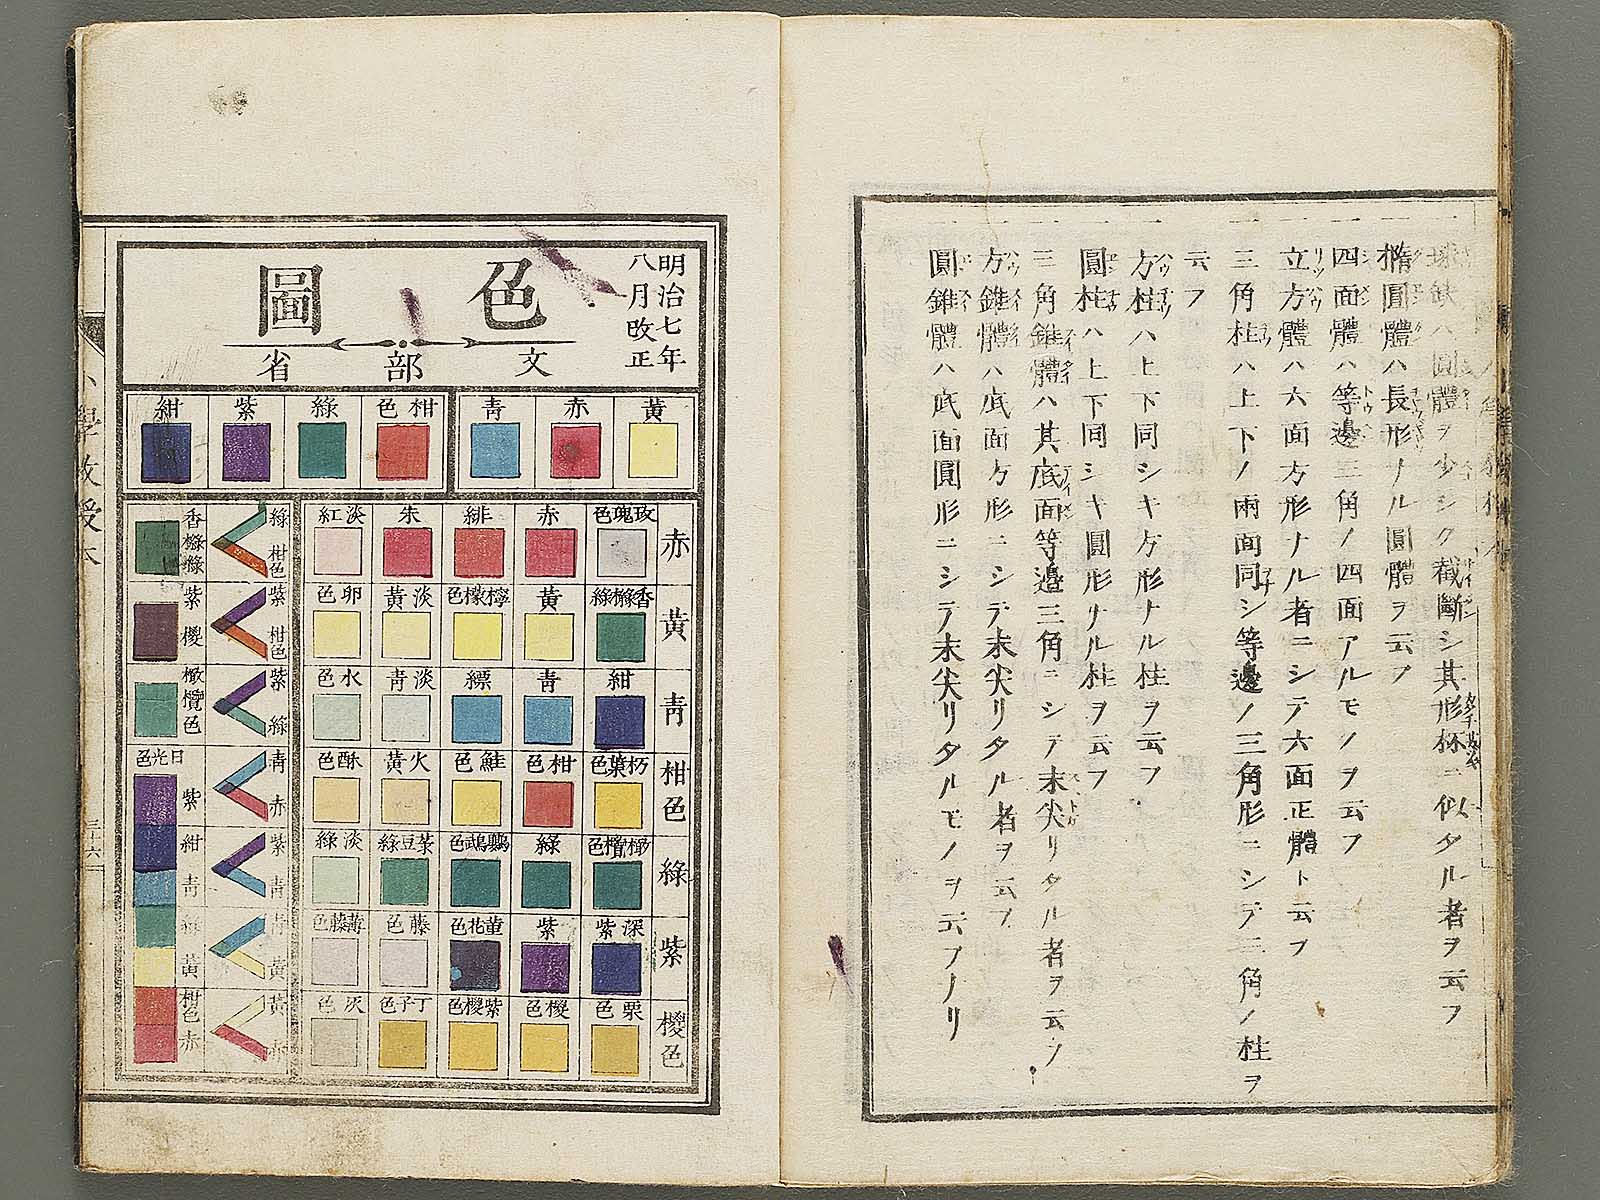 球缺ハ圓體ヲ少シク截斷シ其形杯ニ似タル者ヲ云フ
一楕圓體ハ長形ナル圓體ヲ云フ
一四面體ハ等邊三角ノ四面アルモノヲ云フ
一立方體ハ六面方形ナル者ニシテ六面正體ト云フ
一三角柱ハ上下ノ兩面同シ等邊ノ三角形ニシテ三角ノ柱ヲ
云フ
一方柱ハ上下同シキ方形ナル柱ヲ云フ
一圓柱ハ上下同シキ圓形ナル柱ヲ云フ
一三角錐體ハ其底面等邊三角ニシテ末尖リタル者ヲ云フ
一方錐體ハ底面方形ニシテ末尖リタル者ヲ云フ
一圓錐體ハ底面圓形ニシテ末尖リタルモノヲ云フナリ
明治七年
八月改正
色圖
文部省
黃
赤
靑
柑色
綠
紫
紺
赤
玫瑰色
赤
緋
朱
淡紅
黃
香櫞綠
黃
檸檬色
淡黃
卵色
靑
紺
靑
縹
淡靑
水色
柑色
朽葉色
柑色
鮭色
火黃
酥色
綠
綠
鸚鵡色
菉豆綠
淡綠
紫
深紫
紫
菫花色
藤色
薄藤色
樱色
栗色
樱色
紫樱色
丁子色
灰色
綠
柑色
紫
柑色
紫
綠
靑
赤
紫
靑
靑
黃
黃
赤
香櫞綠
紫樱
橄欖色
日光色
紫
紺
靑
綠
黃
柑色
赤
小學教授本
三十六